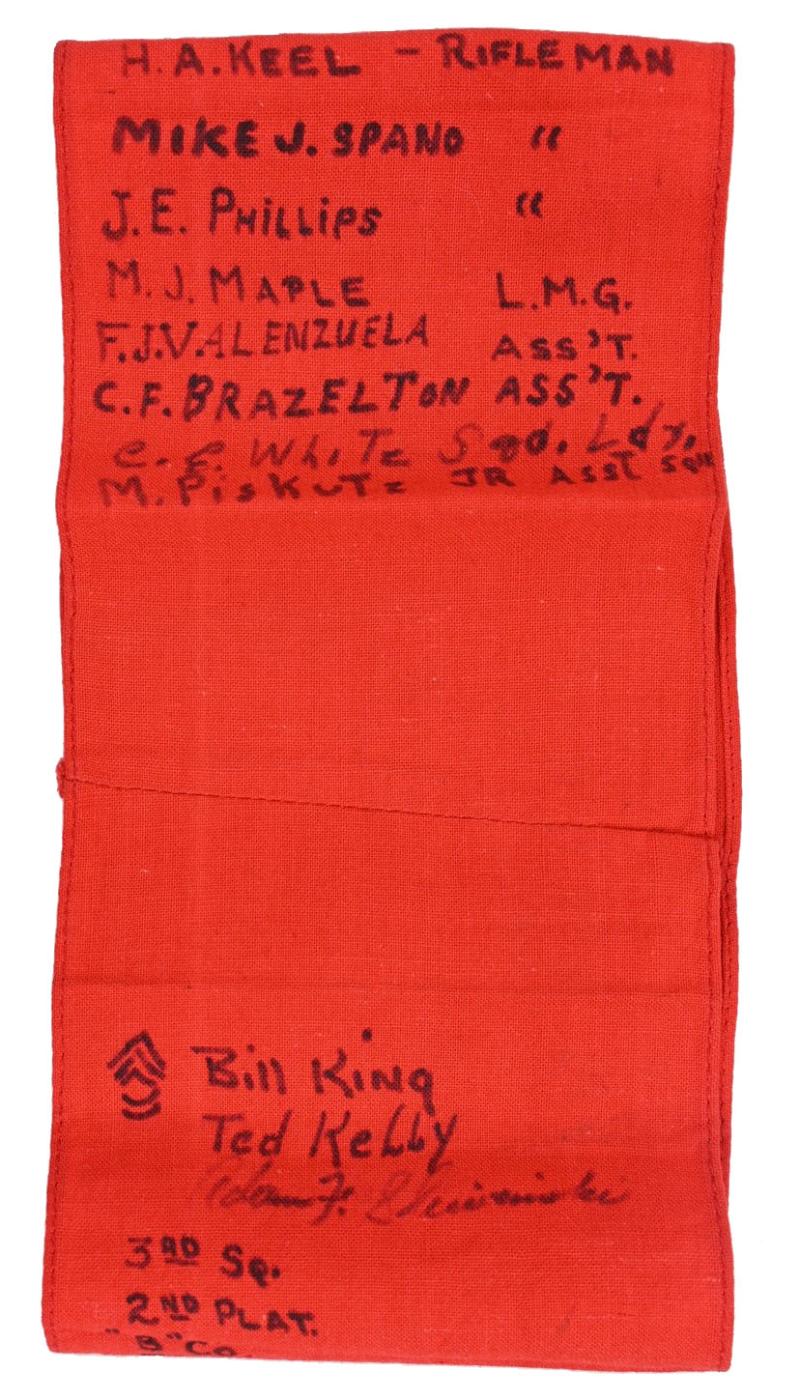 H. A. KEEL - RIFLEMAN
MIKE J. SPANO "
J. E. PHiLLiPS "
M. J. MAPLE L.M.G.
F.J.VALENZUELA ASS'T.
C. F. BRAZELTON ASS'T.
WhiTe Sqd. Ldr.
M. PisKuTz JR ASST
Bill King
Ted Kelly
Adam F.
3RD SQ.
2ND PLAT.
"B" Co.